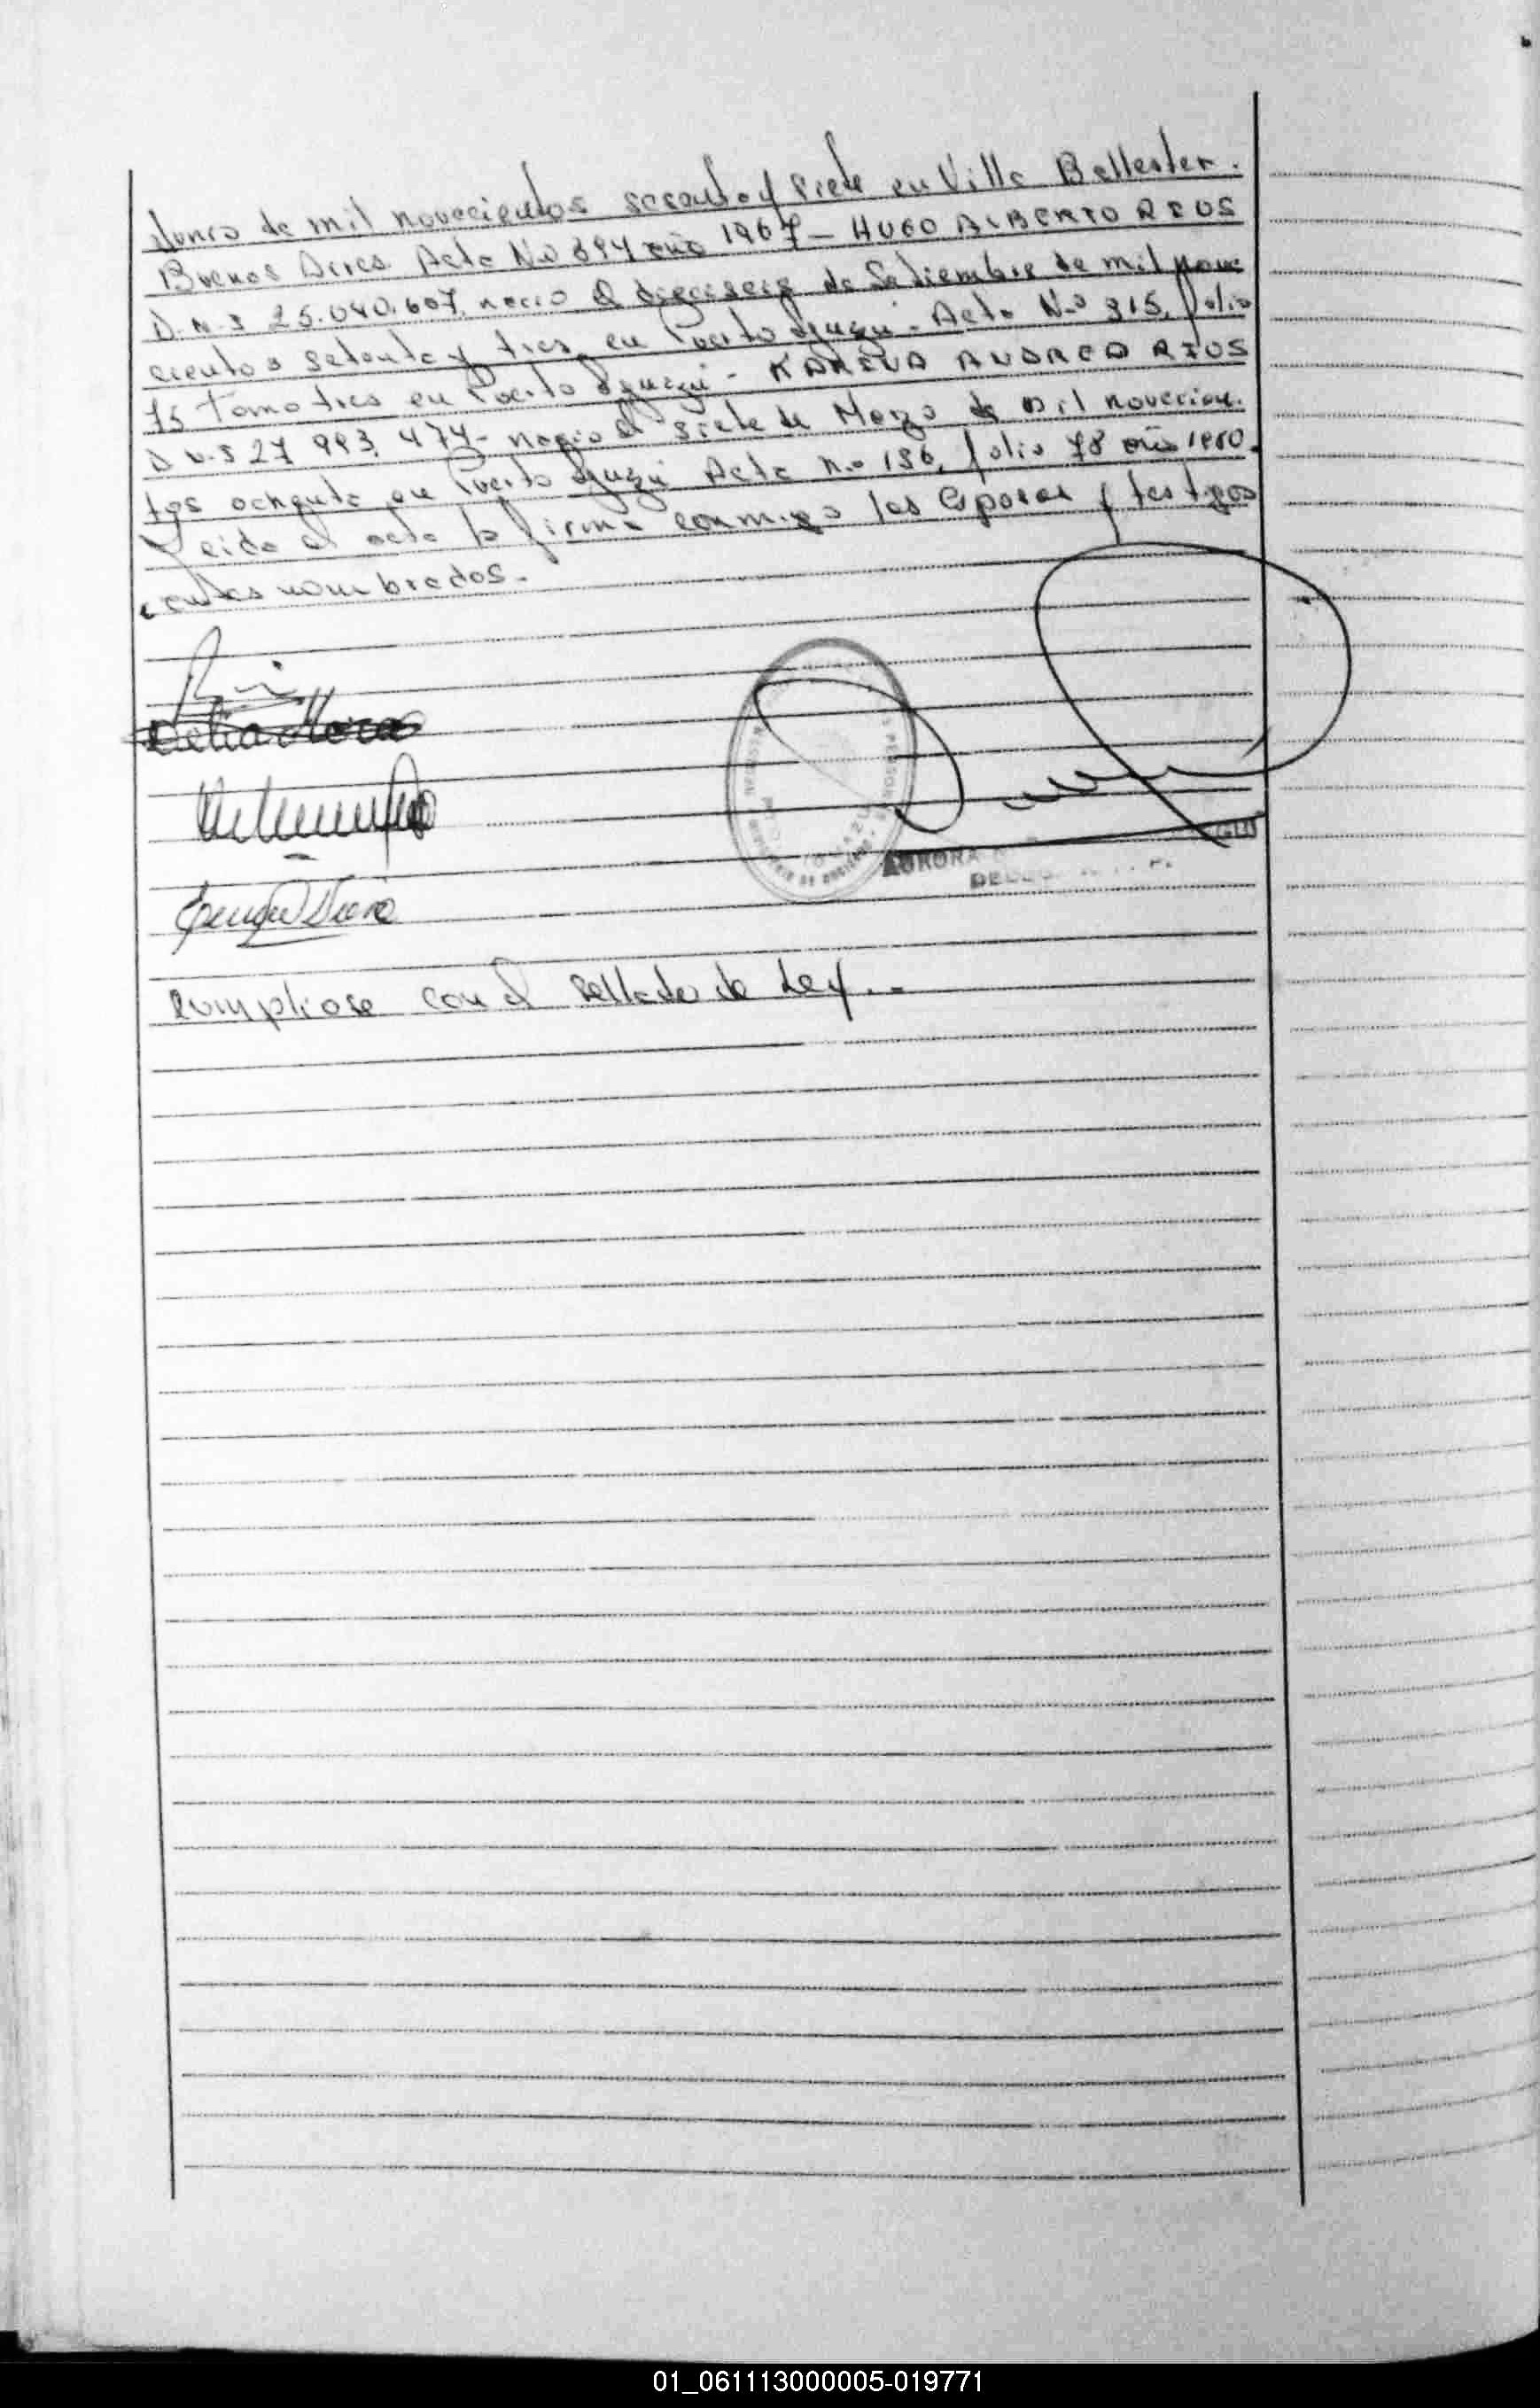 Junio de mil novecientos sesenta y siete en Villa Ballester.
Buenos Aires Acta N.o 894 año 1967 - HUGO ALBERTO RIOS
D.N.I 25.040.607, nacio el dieciseis de Setiembre de mil nove
cientos setenta y tres en Puerto Iguazú - Acta N.o 315, folio
75 Tomo tres en Puerto Iguazú - KARINA ANDREA RIOS
D.N.I 27 993, 474 - nacio el siete de Marzo de mil novecien.
tos ochenta en Puerto Iguazú Acta N.o 156, folio 78 año 1980.
Leida el acta la firma conmigo los esposos y testigos
antes nombrados.-
Delia
AURORA
cumpliose con el sellado de Ley..-
01_061113000005-019771